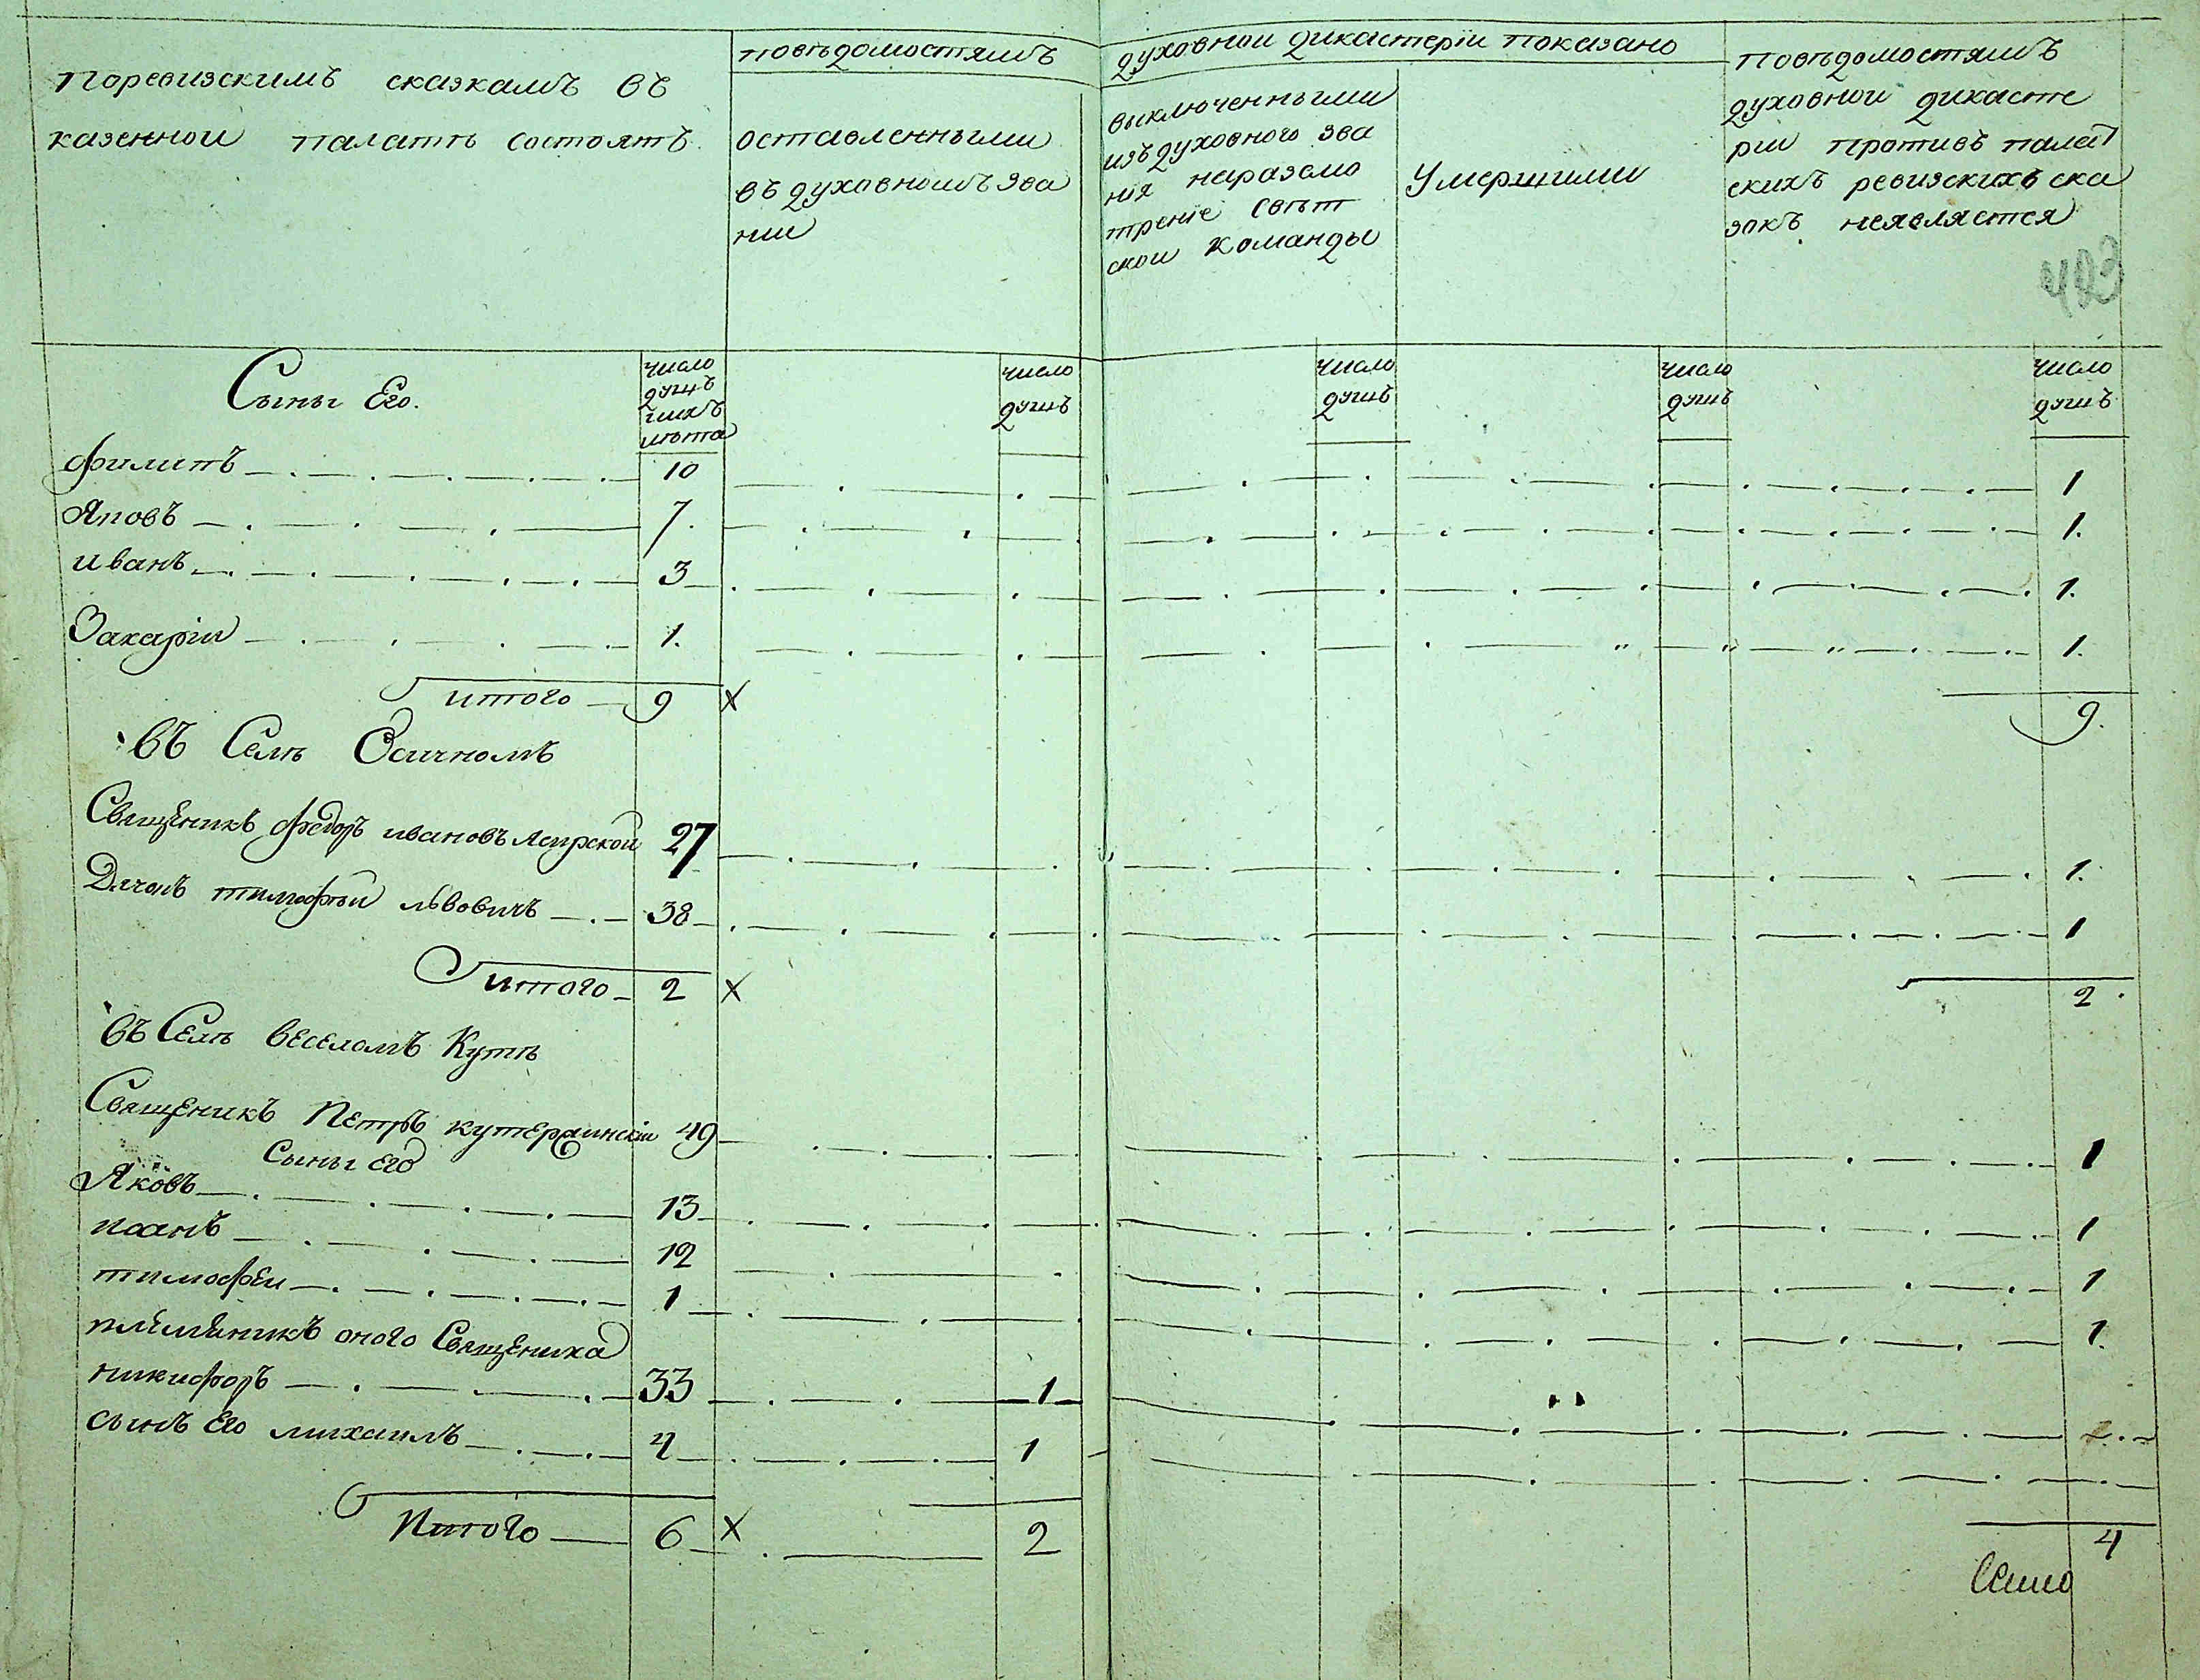 поревизскимъ сказкамъ въ
казенной палатѣ состоятъ.
повѣдомостямъ
оставленными
въ духовномъ зва
нии
духовной дикастерiи показано
выключенными
изъ духовного зва
нiя наразсмо
трѣнiе свѣт
ской команды
Умершими
повѣдомостямъ
духовной дикасте
рiи противъ палат
скихъ ревизскихъ ска
зокъ неявляется
423
Сыны Его.
число
душъ
ихъ
лѣта
число
душъ
число
душъ
число
душъ
число
душъ
Филипъ 10 1
Яковъ 7. 1.
иванъ 3 1.
Захарiй 1. 1.
итого 9 х 9.
въ Селѣ Осичномъ
Священикъ Федоръ ивановъ 27 1.
Дячокъ тимофѣй львовичъ 38 1
итого 2 х 2.
въ Селѣ веселомъ Кутѣ
Священикъ Петръ 49 1
Сыны Его
Яковъ 13 1
иоанъ 12 1
тимофей 1 1.
племѣникъ оного Священика
никифоръ 33 1
сынъ Его михаилъ 4 1
Итого 6 х 2 4